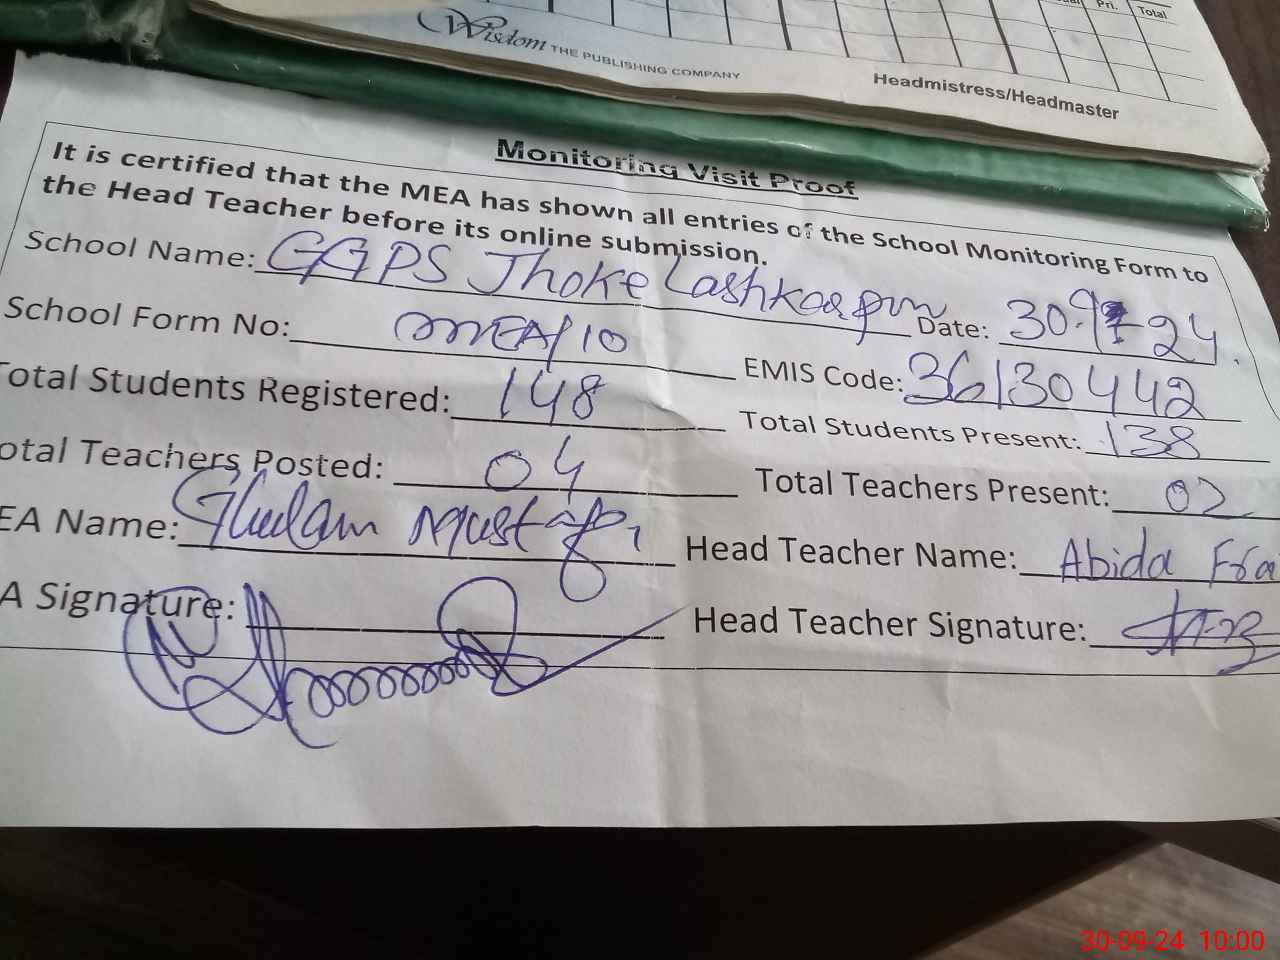 ual Pri. Total
Wisdom THE PUBLISHING COMPANY
Headmistress/Headmaster
Monitoring Visit Proof
It is certified that the MEA has shown all entries of the School Monitoring Form to
the Head Teacher before its online submission.
School Name: GGPS Jhoke Lashkarpur Date: 30.9-24.
School Form No: MEA/10 EMIS Code: 36130442
Total Students Registered: 148 Total Students Present: 138
otal Teachers Posted: 04 Total Teachers Present: 02
EA Name: Ghulam Mustafa Head Teacher Name: Abida
A Signature: Head Teacher Signature:
30-09-24 10:00